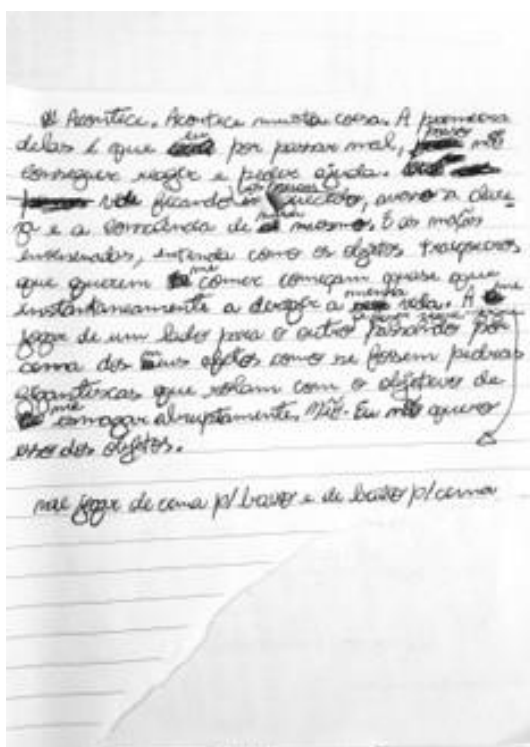 Acontece. Acontece muita coisa. A primeira
delas é que eu por passar mal, posso não
conseguir reagir e pedir ajuda.
vou ficando aos poucos a clare
za e a consciência de mim mesmo. E as maçãs
envenenadas, entenda como os objetos traiçoeiros
que querem me comer começam quase que
instantaneamente a devorar a minha vida. A me
jogar de um lado para o outro passando por
cima dos meus afetos como se fossem pedras
gigantescas que rolam com o objetivo de
me esmagar abruptamente. Não. Eu não quero
isso dos objetos.
me jogar de cima p/ baixo e de baixo p/ cima